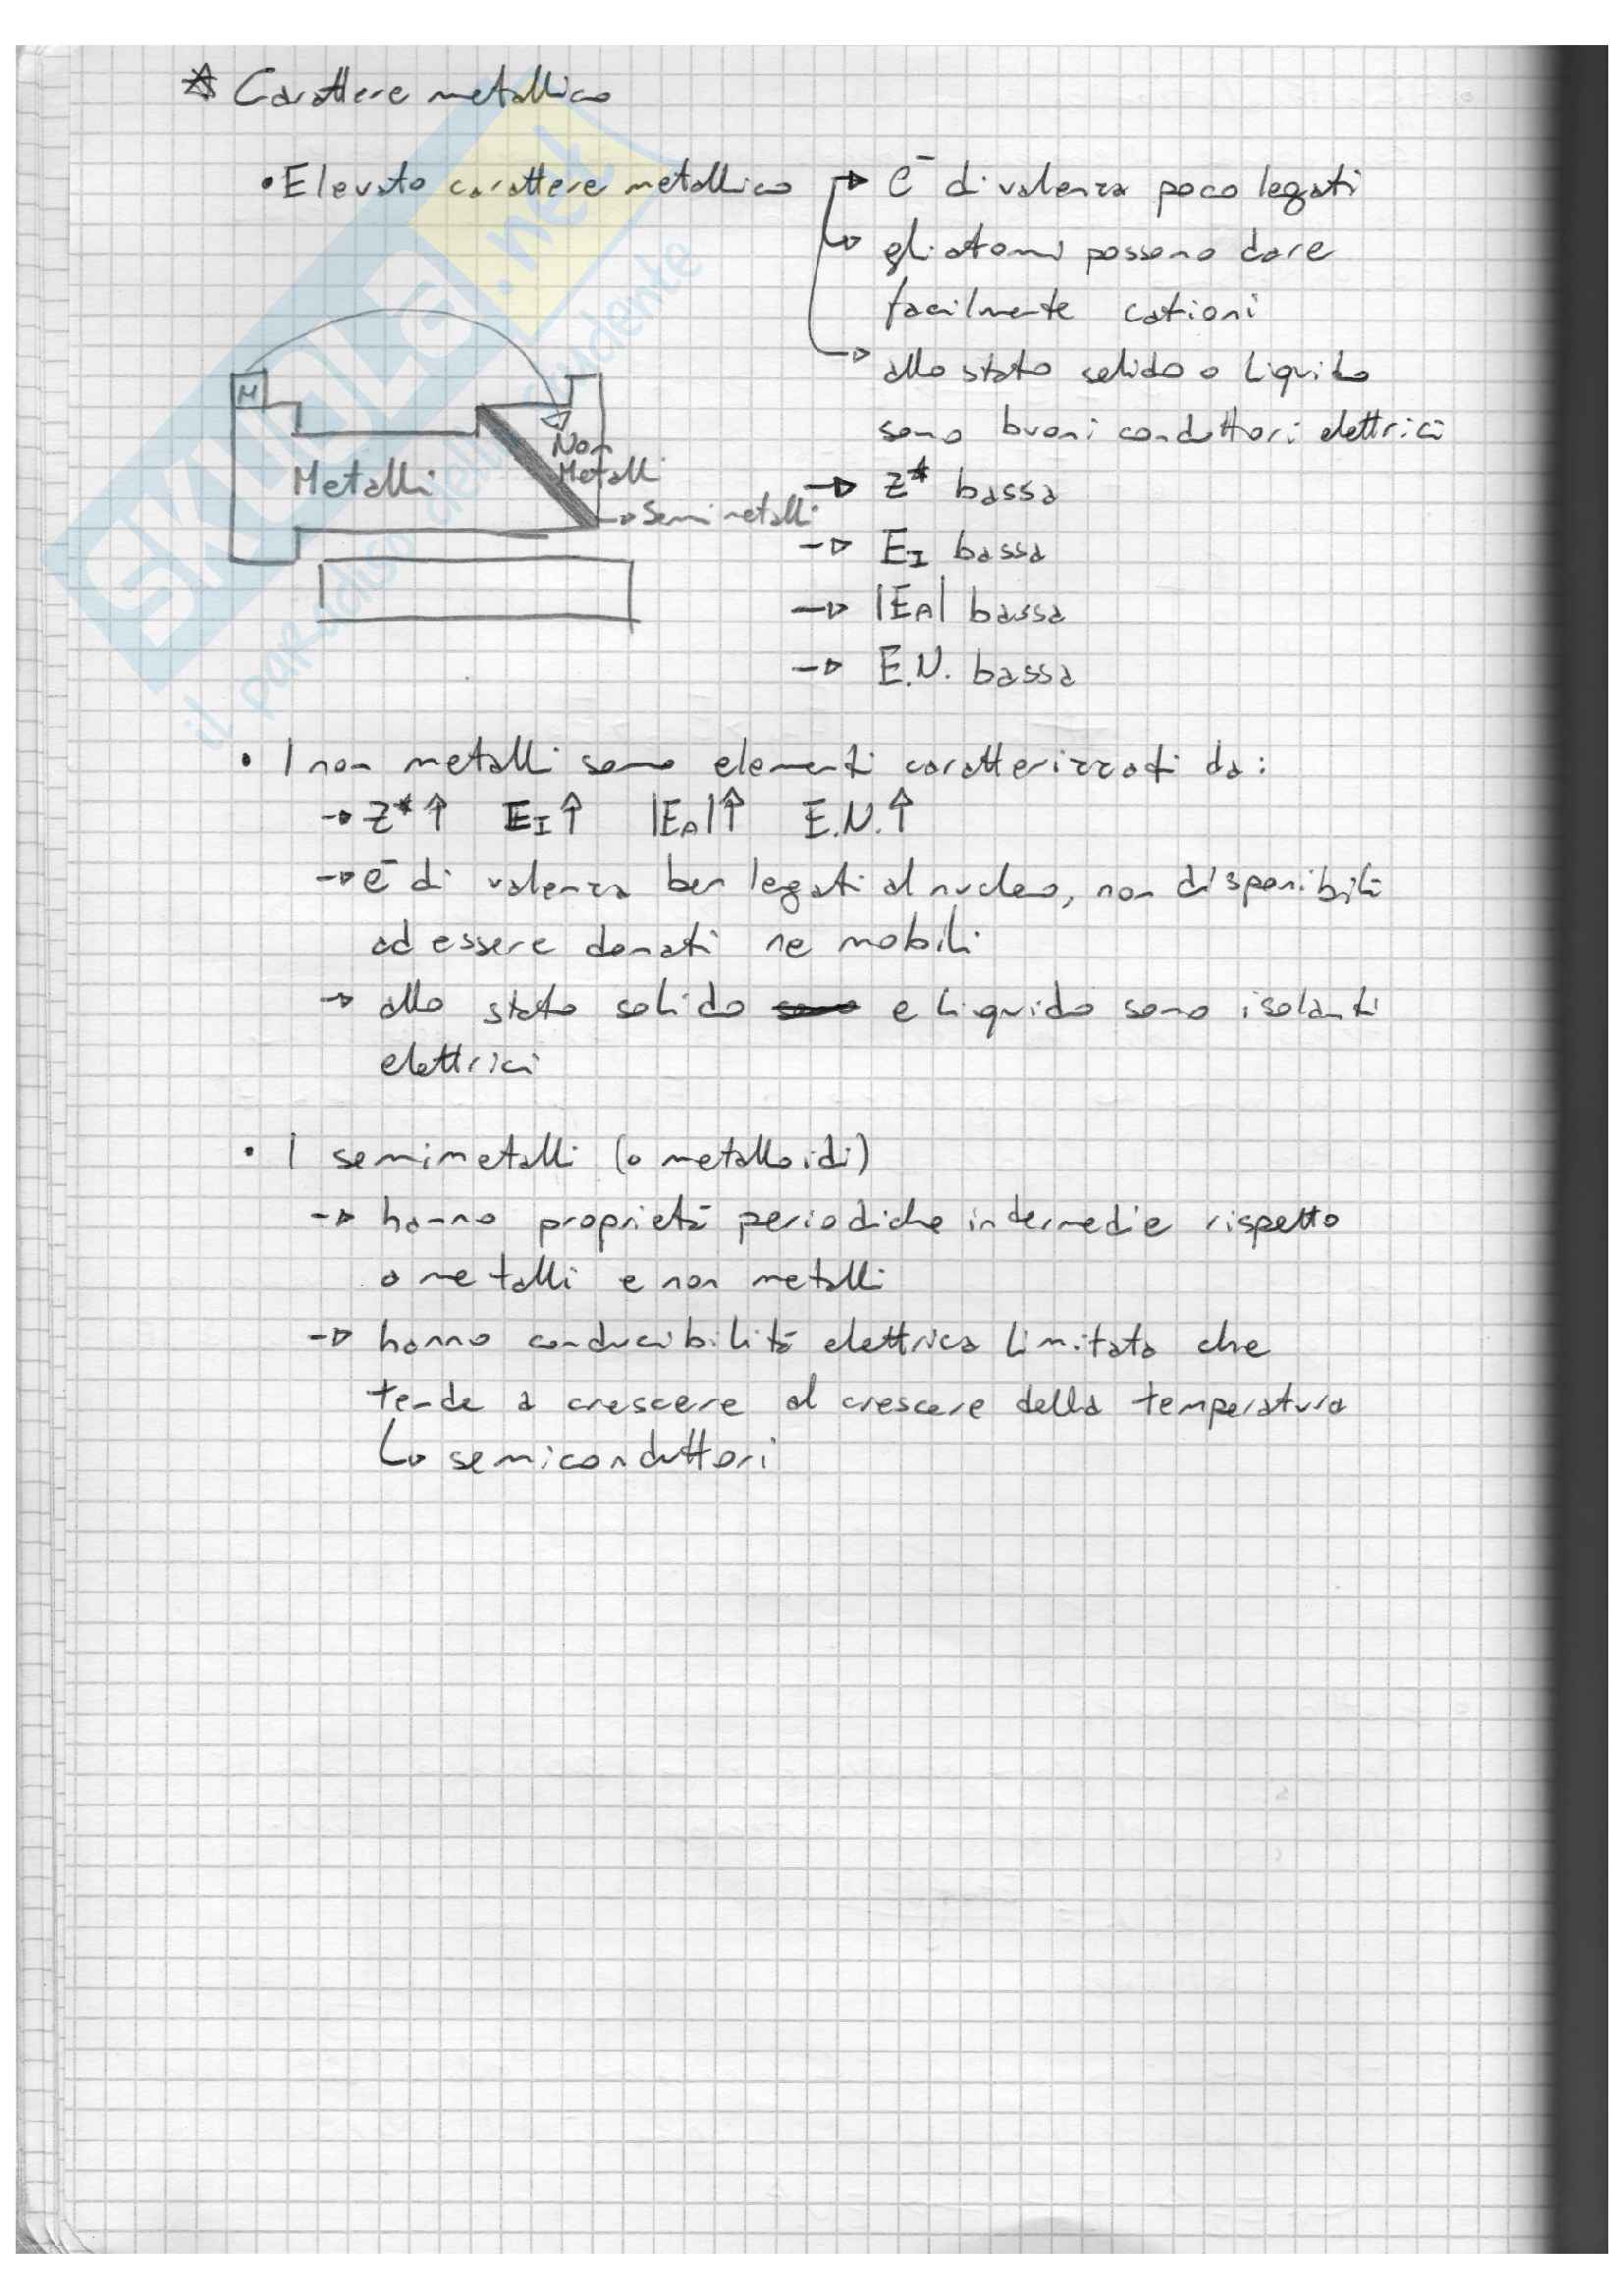 * Carattere metallico
• Elevato carattere metallico → e⁻ di valenza poco legati
↳ gli atomi possono dare
facilmente cationi
→ allo stato solido o liquido
sono buoni conduttori elettrici
→ Z* bassa
→ E_I bassa
→ |E_A| bassa
→ E.N. bassa
H
Metalli
Non
Metalli
→ Semimetalli
• I non metalli sono elementi caratterizzati da:
→ Z*↑ E_I↑ |E_A|↑ E.N.↑
→ e⁻ di valenza ben legati al nucleo, non disponibili
ad essere donati ne mobili
→ allo stato solido sono e liquido sono isolanti
elettrici
• I semimetalli (o metalloidi)
→ hanno proprietà periodiche intermedie rispetto
a metalli e non metalli
→ hanno conducibilità elettrica limitata che
tende a crescere al crescere della temperatura
↳ semiconduttori
SKUOLA.net
il paradiso dello studente